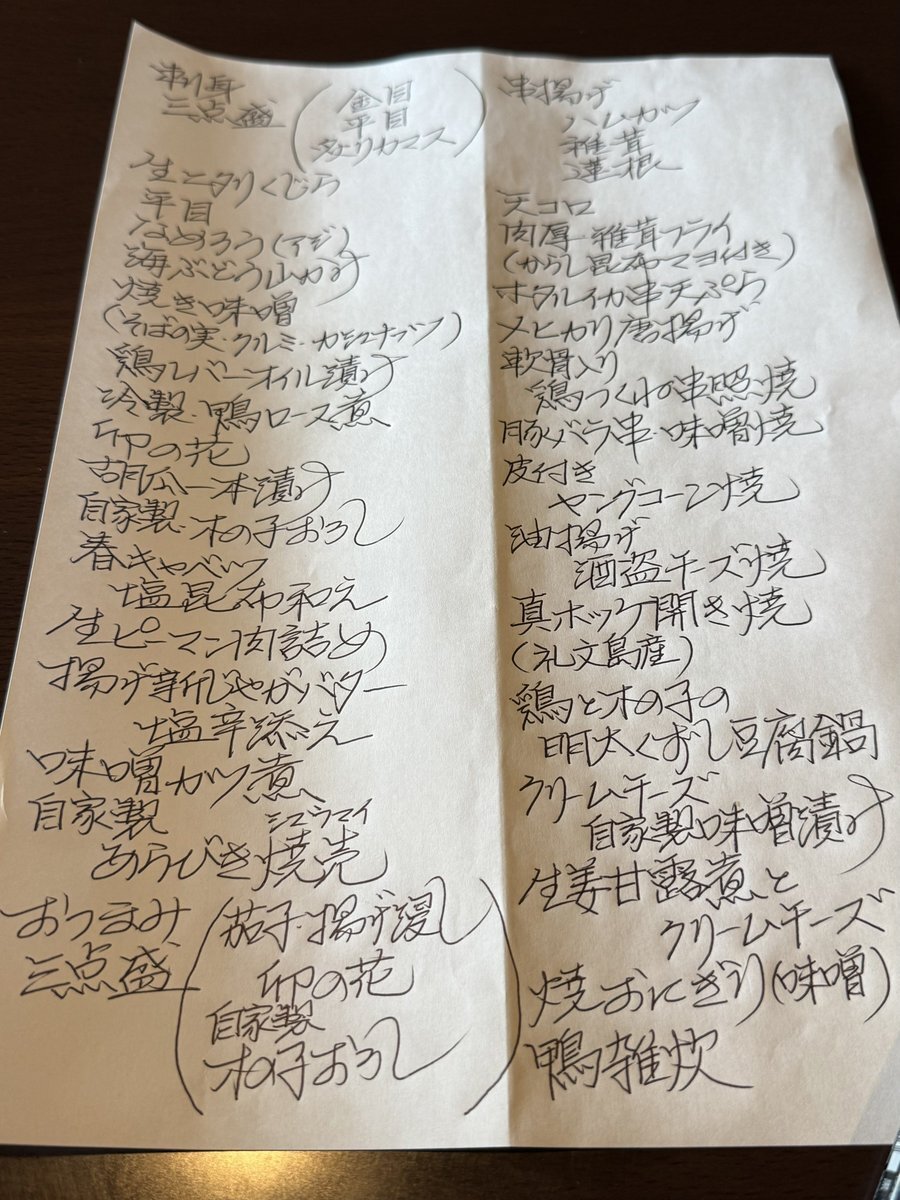 刺身
三点盛
(金目
平目
炙りカマス)
生ニタリくじら
平目
なめろう(アジ)
海ぶどう山かけ
焼き味噌
(そばの実・クルミ・カシューナッツ)
鶏レバーオイル漬け
冷製・鴨ロース煮
卯の花
胡瓜一本漬け
自家製・木の子おろし
春キャベツ
塩昆布和え
生ピーマン肉詰め
揚げ新じゃがバター
塩辛添え
味噌カツ煮
自家製
シュウマイ
あらびき焼売
おつまみ
三点盛
(茄子・揚げ浸し
卯の花
自家製
木の子おろし)
串揚げ
ハムカツ
椎茸
蓮根
天コロ
肉厚椎茸フライ
(からし昆布マヨ付き)
ホタルイカ串天ぷら
メヒカリ唐揚げ
軟骨入り
鶏つくねの串照焼
豚バラ串・味噌焼
皮付き
ヤングコーン焼
油揚げ
酒盗チーズ焼
真ホッケ開き焼
(礼文島産)
鶏と木の子の
明太くずし豆腐鍋
クリームチーズ
自家製味噌漬け
生姜甘露煮と
クリームチーズ
焼おにぎり(味噌)
鴨雑炊